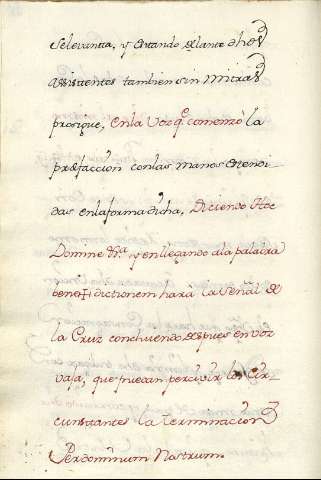 se levanta, y estando delante dhos
assistentes tambien sin mitras
prosigue, en la voz q.e comenzò la
præfaccion con las manos estendi-
das en la forma dicha, Diciendo Hoc
Domine &.a y en llegando a la palabra
bene✝dictionem harà la señal de
la Cruz concluiendo despues en voz
vaja, que puedan percivir los Cir-
cunstantes la terminacion
Per dominum Nostrum.